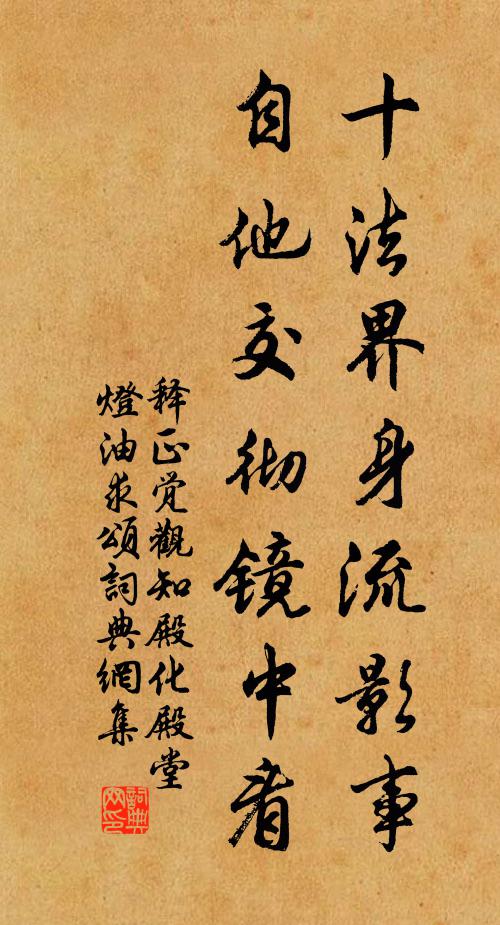 十法界身流影事
自他交彻镜中看
释正觉觀知殿化殿堂
燈油求頌詞典網集
詞典网印